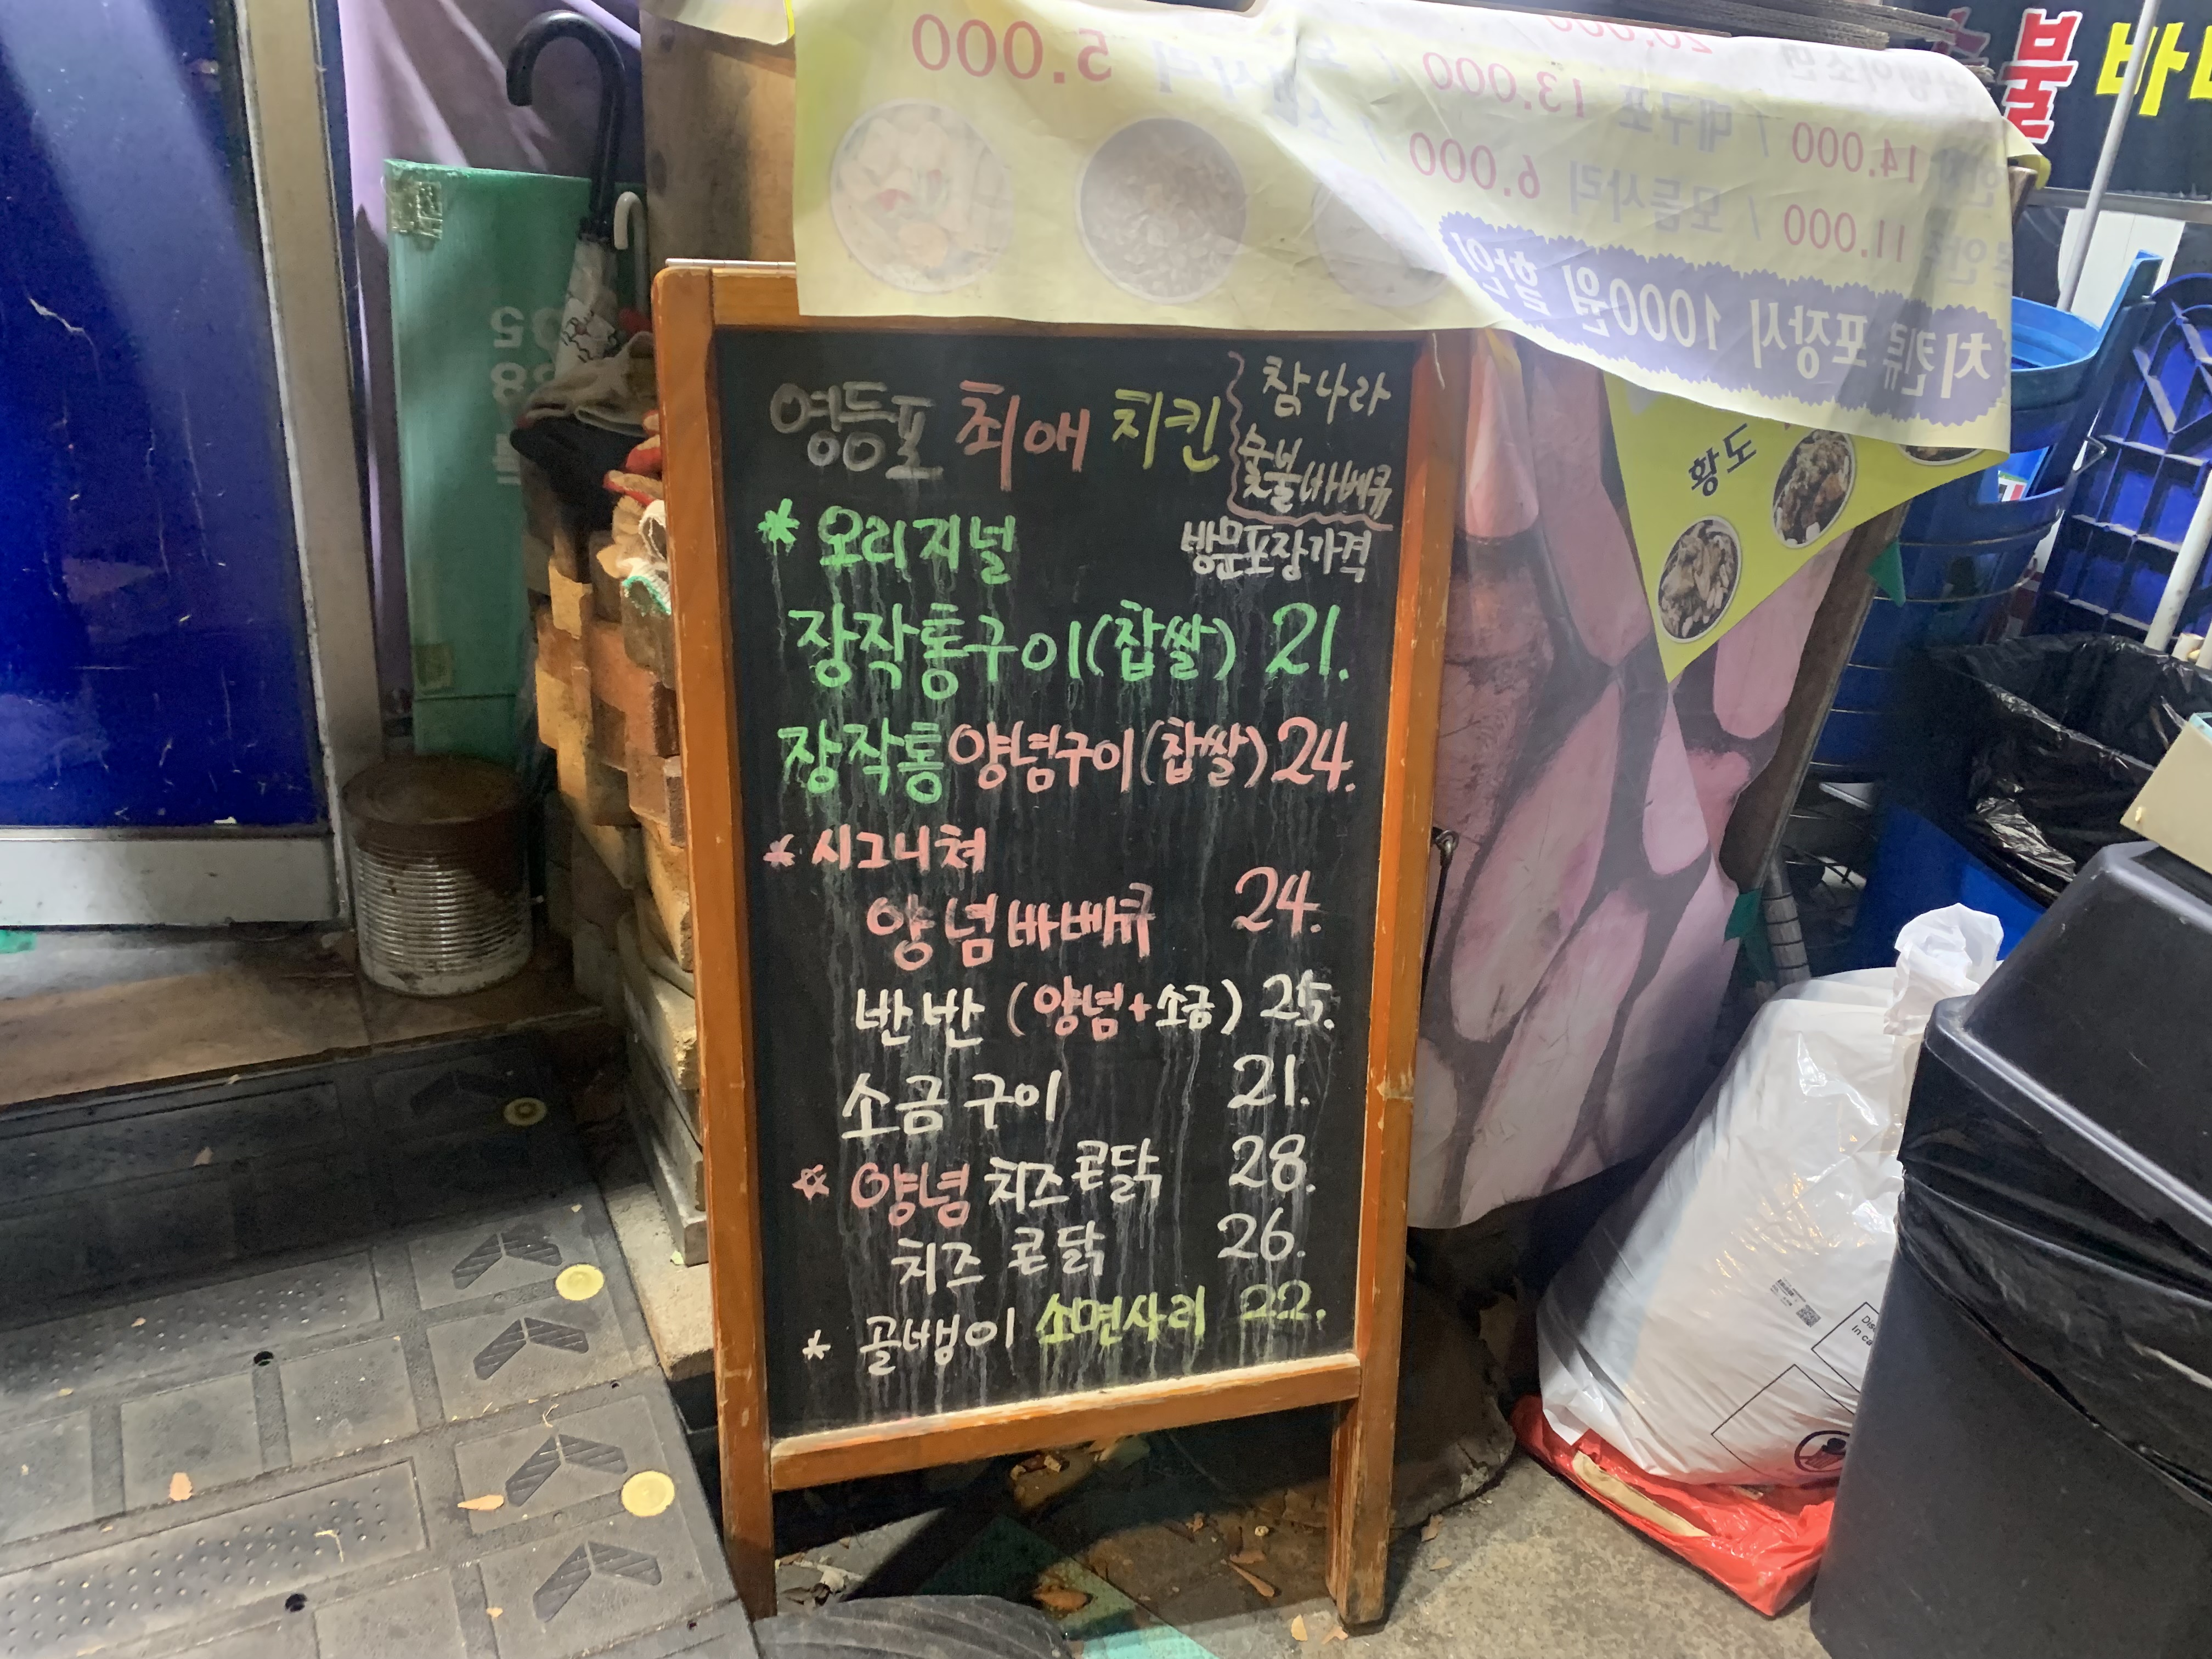 5.000
20.000
대구포 13.000 /
14.000 /
모듬사리 6.000 /
11.000 /
치킨류 포장시 1000원 할인
불 바
황도
영등포 최애 치킨
참나라
숯불바베큐
* 오리지널
방문포장가격
장작통구이(찹쌀) 21.
장작통양념구이(찹쌀) 24.
* 시그니쳐
양념바베큐 24.
반반 (양념+소금) 25.
소금구이 21.
☆ 양념 치즈콘닭 28.
치즈콘닭 26.
* 골뱅이 소면사리 22.